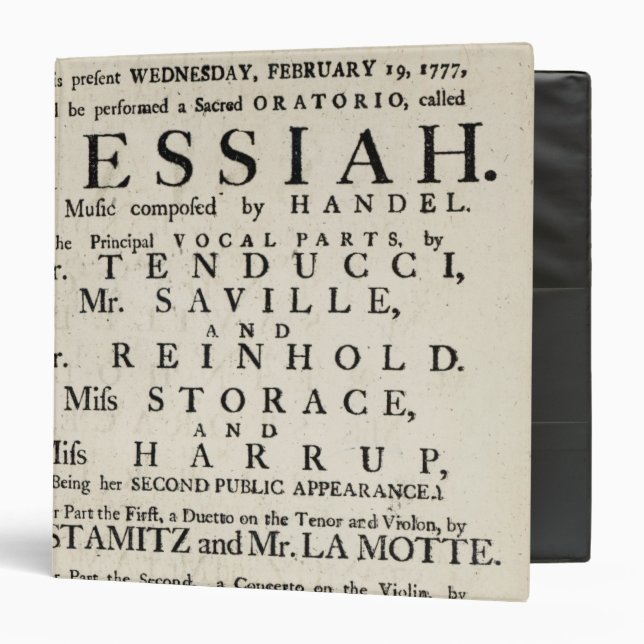 is preſent WEDNESDAY, FEBRUARY 19, 1777,
l be performed a Sacred ORATORIO, called
ESSIAH.
Muſic compoſed by HANDEL.
he Principal VOCAL PARTS, by
r. TENDUCCI,
Mr. SAVILLE,
AND
r. REINHOLD.
Miſs STORACE,
AND
Miſs HARRUP,
Being her SECOND PUBLIC APPEARANCE.)
r Part the Firſt, a Duetto on the Tenor and Violon, by
STAMITZ and Mr. LA MOTTE.
r Part the Second, a Concerto on the Violin, by